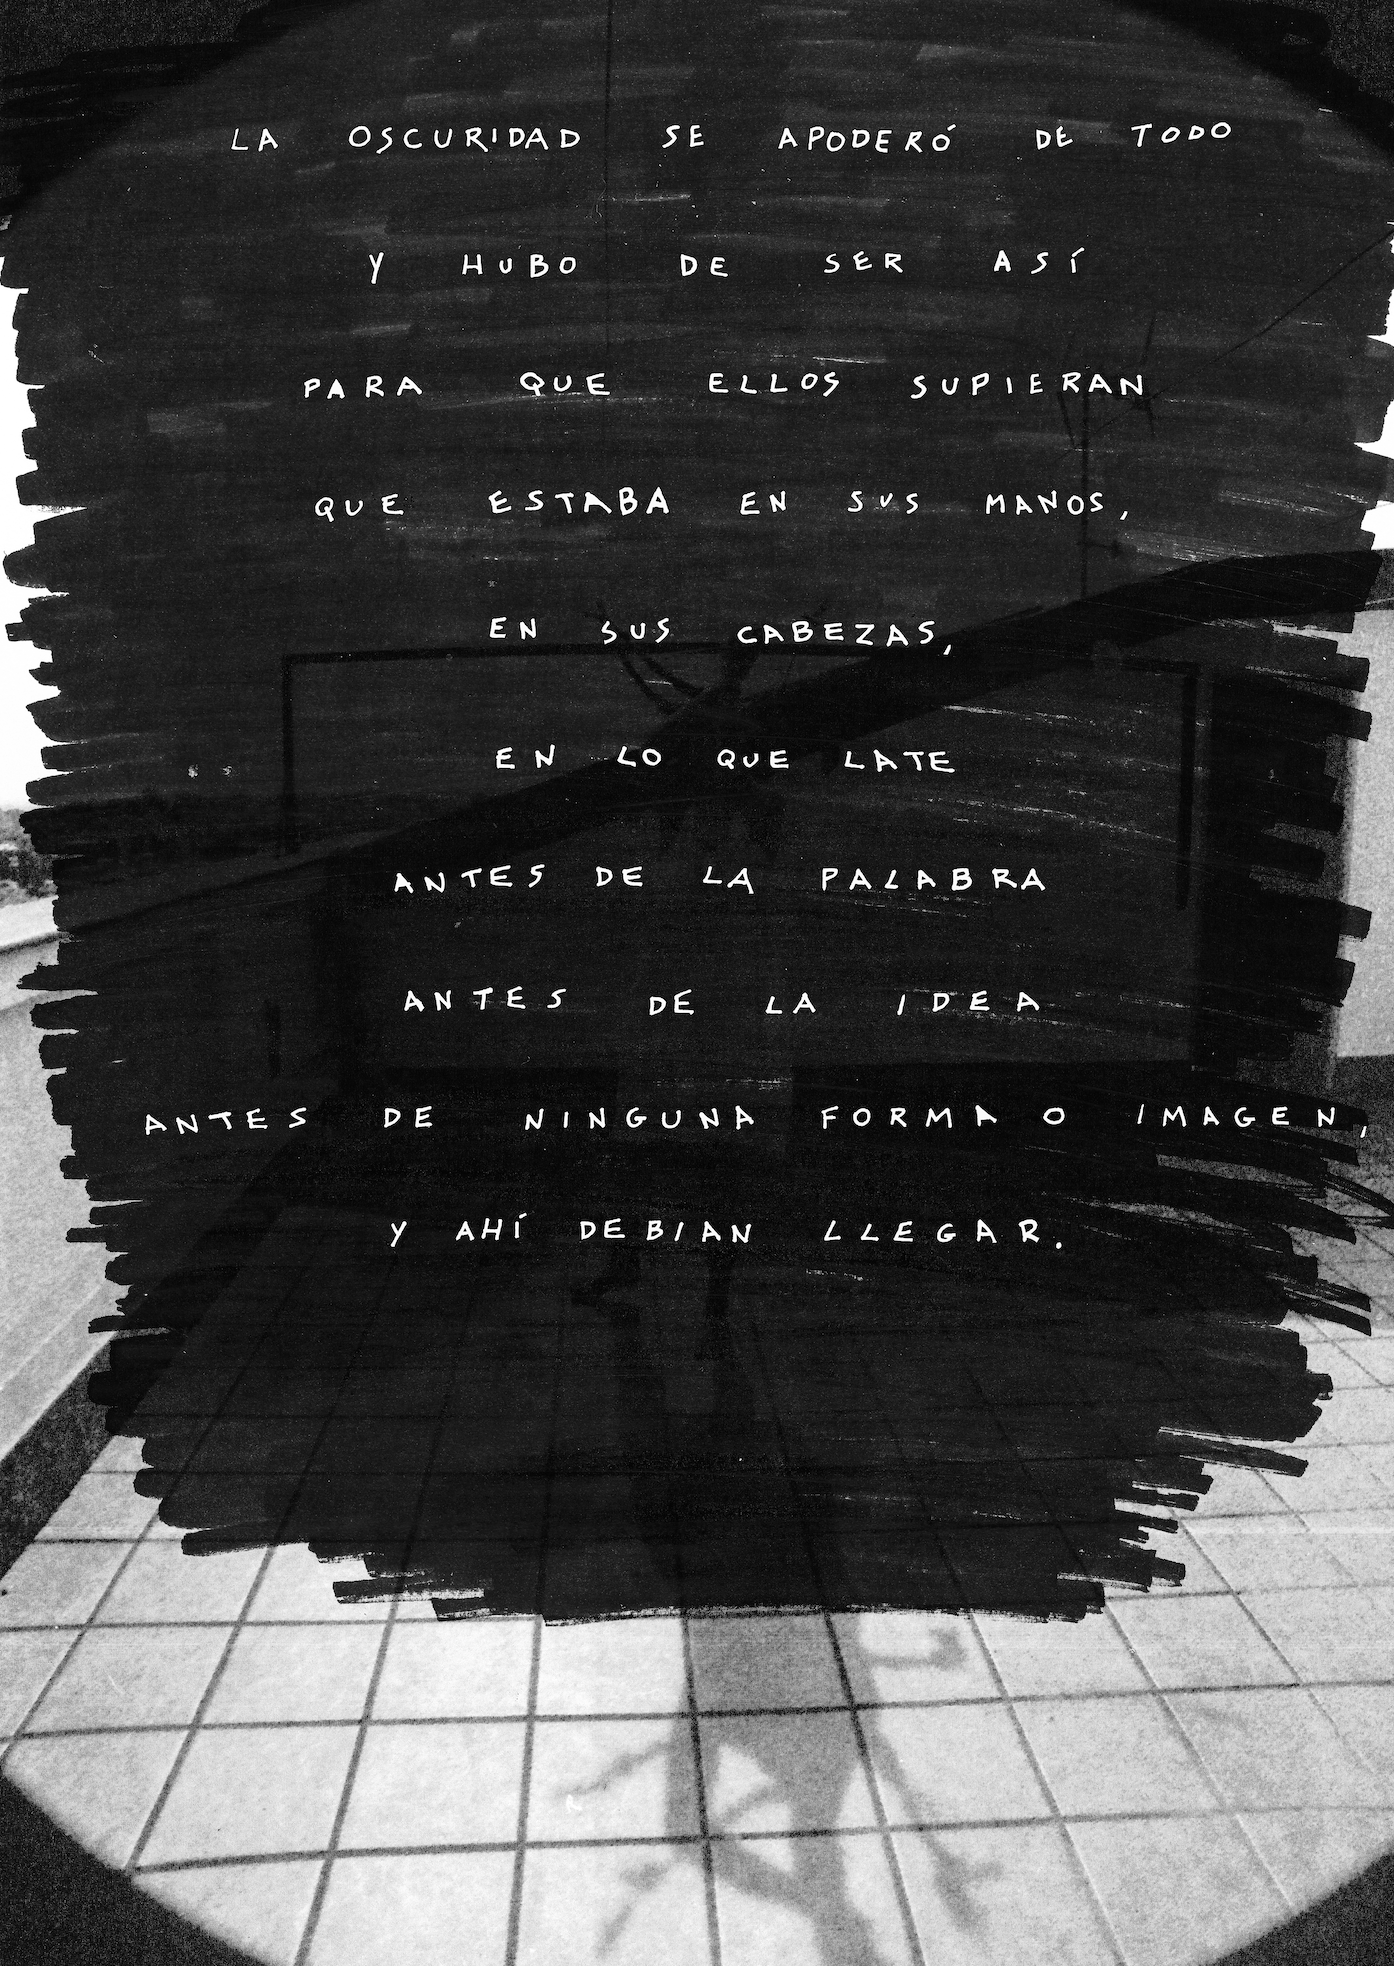 LA OSCURIDAD SE APODERÓ DE TODO
Y HUBO DE SER ASÍ
PARA QUE ELLOS SUPIERAN
QUE ESTABA EN SUS MANOS,
EN SUS CABEZAS,
EN LO QUE LATE
ANTES DE LA PALABRA
ANTES DE LA IDEA
ANTES DE NINGUNA FORMA O IMAGEN,
Y AHÍ DEBIAN LLEGAR.